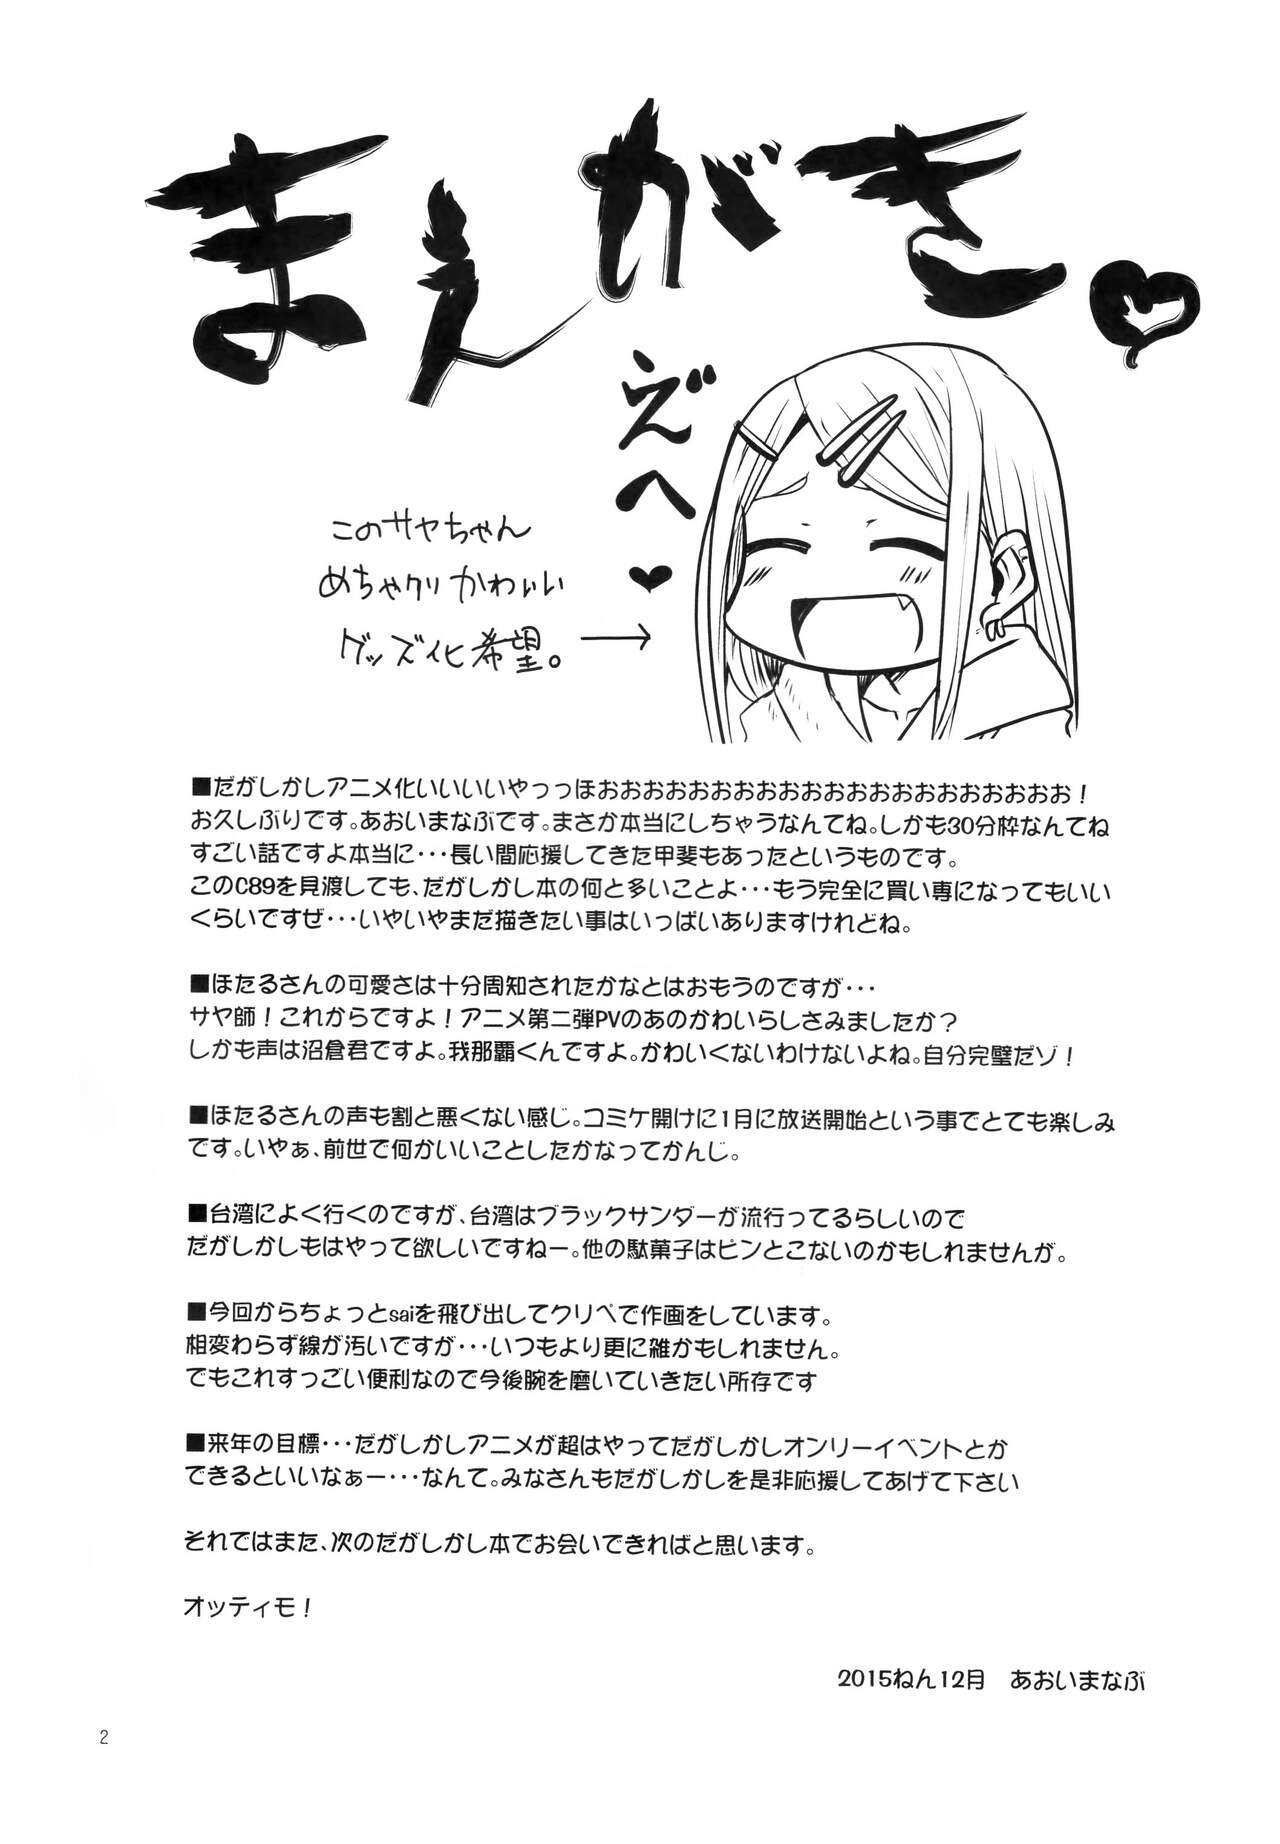 まえがき♥
えへ゛♥
このサヤちゃん
めちゃクリかわいい
グッズ化希望。→
■だがしかしアニメ化いいいいやっっほおおおおおおおおおおおおおおおおおおおおお！
お久しぶりです。あおいまなぶです。まさか本当にしちゃうなんてね。しかも30分枠なんてね
すごい話ですよ本当に・・・長い間応援してきた甲斐もあったというものです。
このC89を見渡しても、だがしかし本の何と多いことよ・・・もう完全に買い専になってもいい
くらいですぜ・・・いやいやまだ描きたい事はいっぱいありますけれどね。
■ほたるさんの可愛さは十分周知されたかなとはおもうのですが・・・
サヤ師！これからですよ！アニメ第二弾PVのあのかわいらしさみましたか？
しかも声は沼倉君ですよ。我那覇くんですよ。かわいくないわけないよね。自分完璧だゾ！
■ほたるさんの声も割と悪くない感じ。コミケ開けに1月に放送開始という事でとても楽しみ
です。いやぁ、前世で何かいいことしたかなってかんじ。
■台湾によく行くのですが、台湾はブラックサンダーが流行ってるらしいので
だがしかしもはやって欲しいですねー。他の駄菓子はピンとこないのかもしれませんが。
■今回からちょっとsaiを飛び出してクリペで作画をしています。
相変わらず線が汚いですが・・・いつもより更に雑かもしれません。
でもこれすっごい便利なので今後腕を磨いていきたい所存です
■来年の目標・・・だがしかしアニメが超はやってだがしかしオンリーイベントとか
できるといいなぁー・・・なんて。みなさんもだがしかしを是非応援してあげて下さい
それではまた、次のだがしかし本でお会いできればと思います。
オッティモ！
2015ねん12月　あおいまなぶ
2